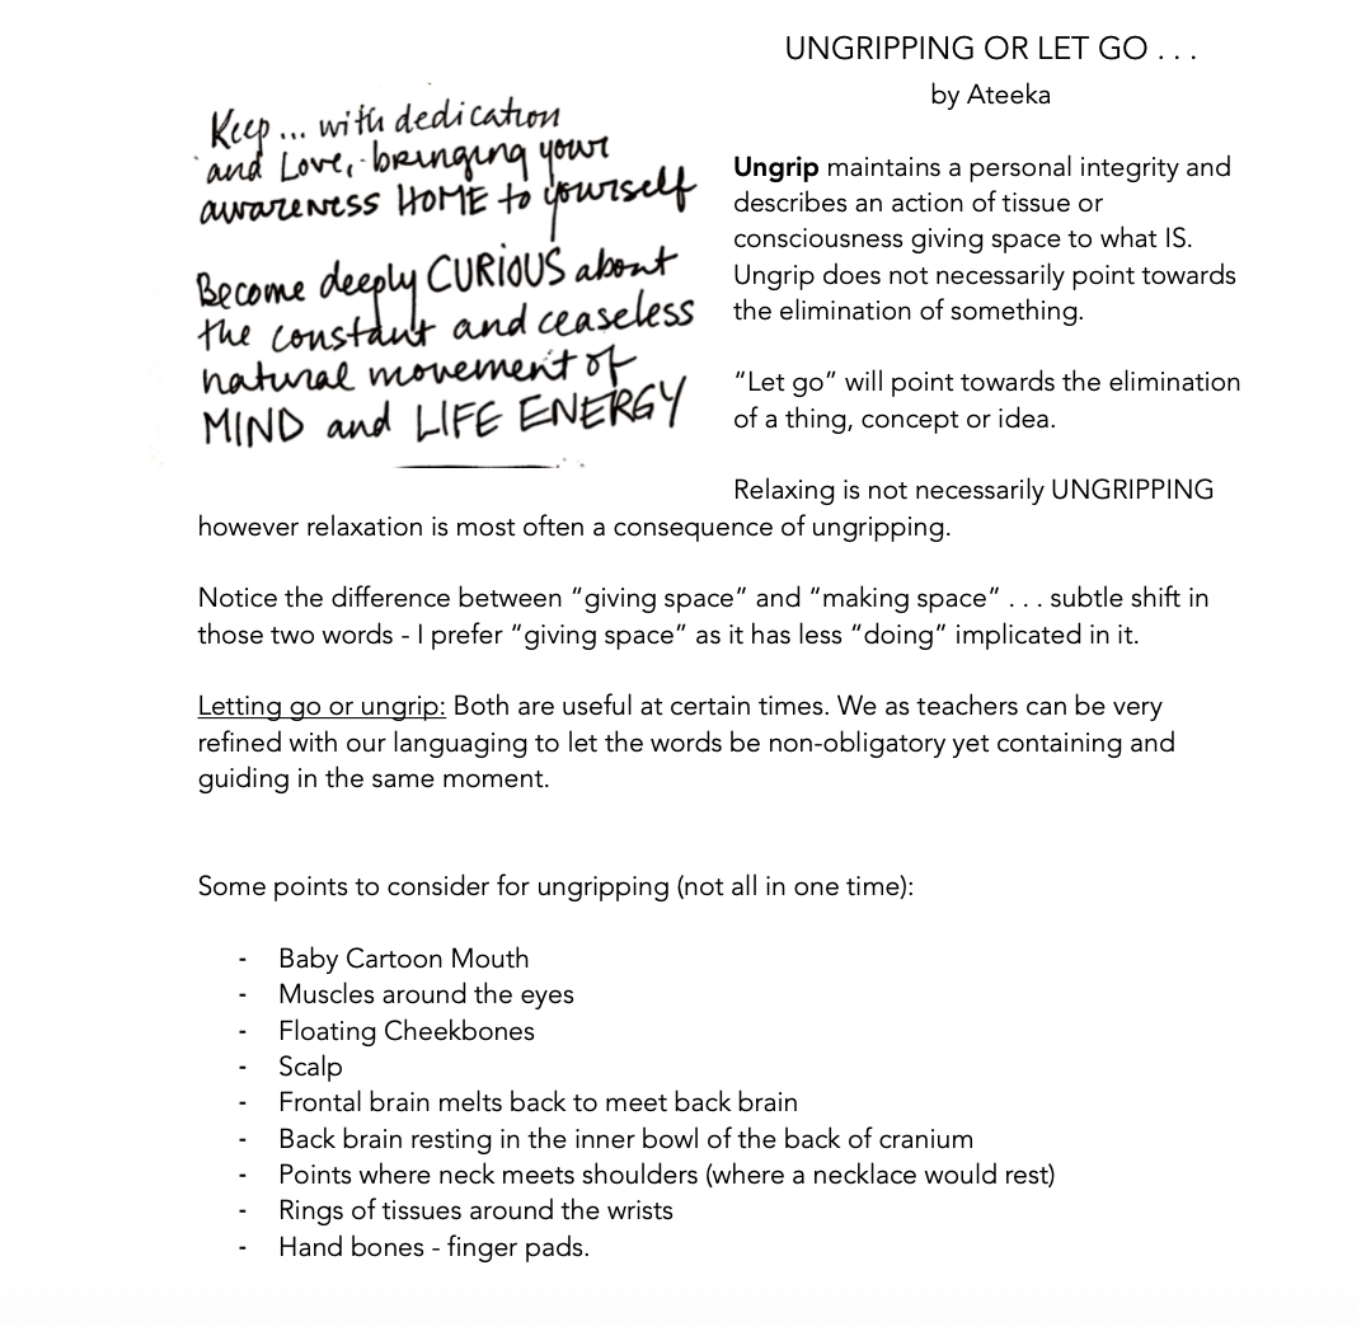 UNGRIPPING OR LET GO . . .
by Ateeka
Keep ... with dedication
and Love, bringing your
awareness HOME to yourself
Become deeply CURIOUS about
the constant and ceaseless
natural movement of
MIND and LIFE ENERGY
Ungrip maintains a personal integrity and
describes an action of tissue or
consciousness giving space to what IS.
Ungrip does not necessarily point towards
the elimination of something.
“Let go” will point towards the elimination
of a thing, concept or idea.
Relaxing is not necessarily UNGRIPPING
however relaxation is most often a consequence of ungripping.
Notice the difference between “giving space” and “making space” . . . subtle shift in
those two words - I prefer “giving space” as it has less “doing” implicated in it.
Letting go or ungrip: Both are useful at certain times. We as teachers can be very
refined with our languaging to let the words be non-obligatory yet containing and
guiding in the same moment.
Some points to consider for ungripping (not all in one time):
- Baby Cartoon Mouth
- Muscles around the eyes
- Floating Cheekbones
- Scalp
- Frontal brain melts back to meet back brain
- Back brain resting in the inner bowl of the back of cranium
- Points where neck meets shoulders (where a necklace would rest)
- Rings of tissues around the wrists
- Hand bones - finger pads.